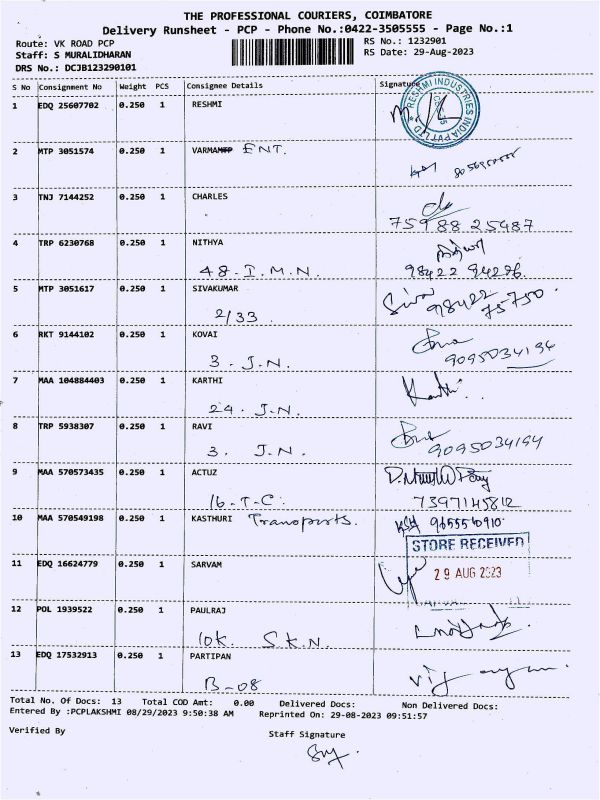 THE PROFESSIONAL COURIERS, COIMBATORE
Delivery Runsheet - PCP - Phone No.:0422-3505555 - Page No.:1
Route: VK ROAD PCP
RS No.: 1232901
Staff: S MURALIDHARAN
RS Date: 29-Aug-2023
DRS No.: DCJB123290101
S No Consignment No Weight PCS Consignee Details Signature
1 EDQ 25607702 0.250 1 RESHMI
RESHMI INDUSTRIES INDIA PVT LTD
2 MTP 3051574 0.250 1 VARMA ENT.
3 TNJ 7144252 0.250 1 CHARLES
75988 25487
4 TRP 6230768 0.250 1 NITHYA
48. I.M.N. 98422 84286
5 MTP 3051617 0.250 1 SIVAKUMAR
Siva 98422 75750.
2/33
6 RKT 9144102 0.250 1 KOVAI
3. J.N. 9095034194
7 MAA 104884403 0.250 1 KARTHI
Karthi.
24. J.N.
8 TRP 5938307 0.250 1 RAVI
3. J.N. 9095034194
9 MAA 570573435 0.250 1 ACTUZ
16-T-C. 7397145812
10 MAA 570549198 0.250 1 KASTHURI Transports. 9655560910
STORE RECEIVED
11 EDQ 16624779 0.250 1 SARVAM
29 AUG 2023
12 POL 1939522 0.250 1 PAULRAJ
10K. S.K.N.
13 EDQ 17532913 0.250 1 PARTIPAN
B-08
Total No. Of Docs: 13 Total COD Amt: 0.00 Delivered Docs: Non Delivered Docs:
Entered By :PCPLAKSHMI 08/29/2023 9:50:38 AM Reprinted On: 29-08-2023 09:51:57
Verified By
Staff Signature